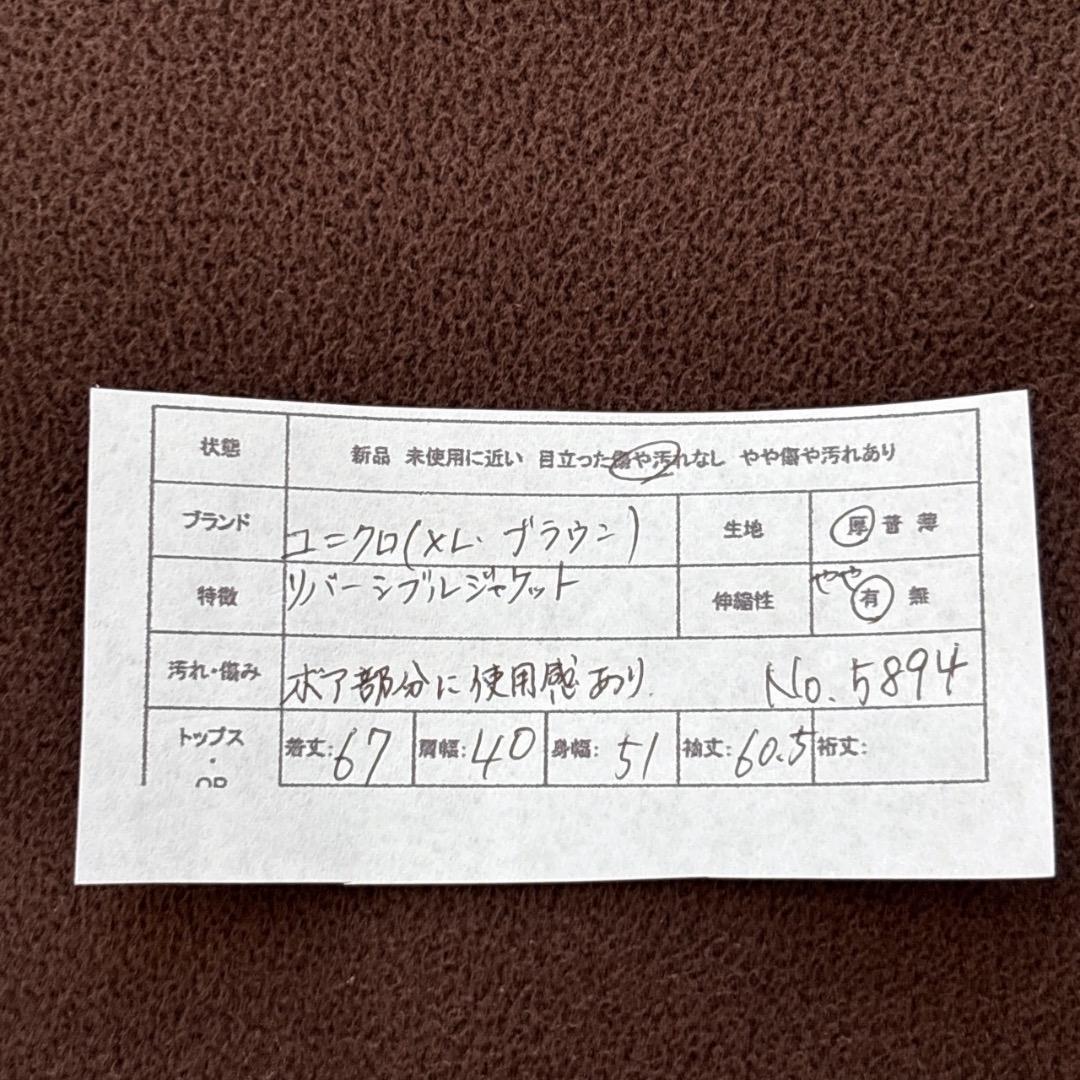 状態 新品 未使用に近い 目立った傷や汚れなし やや傷や汚れあり
ブランド ユニクロ(XL・ブラウン) 生地 厚 普 薄
特徴 リバーシブルジャケット 伸縮性 やや 有 無
汚れ・傷み ボア部分に使用感あり. No.5894
トップス・OP 着丈:67 肩幅:40 身幅:51 袖丈:60.5 裄丈: